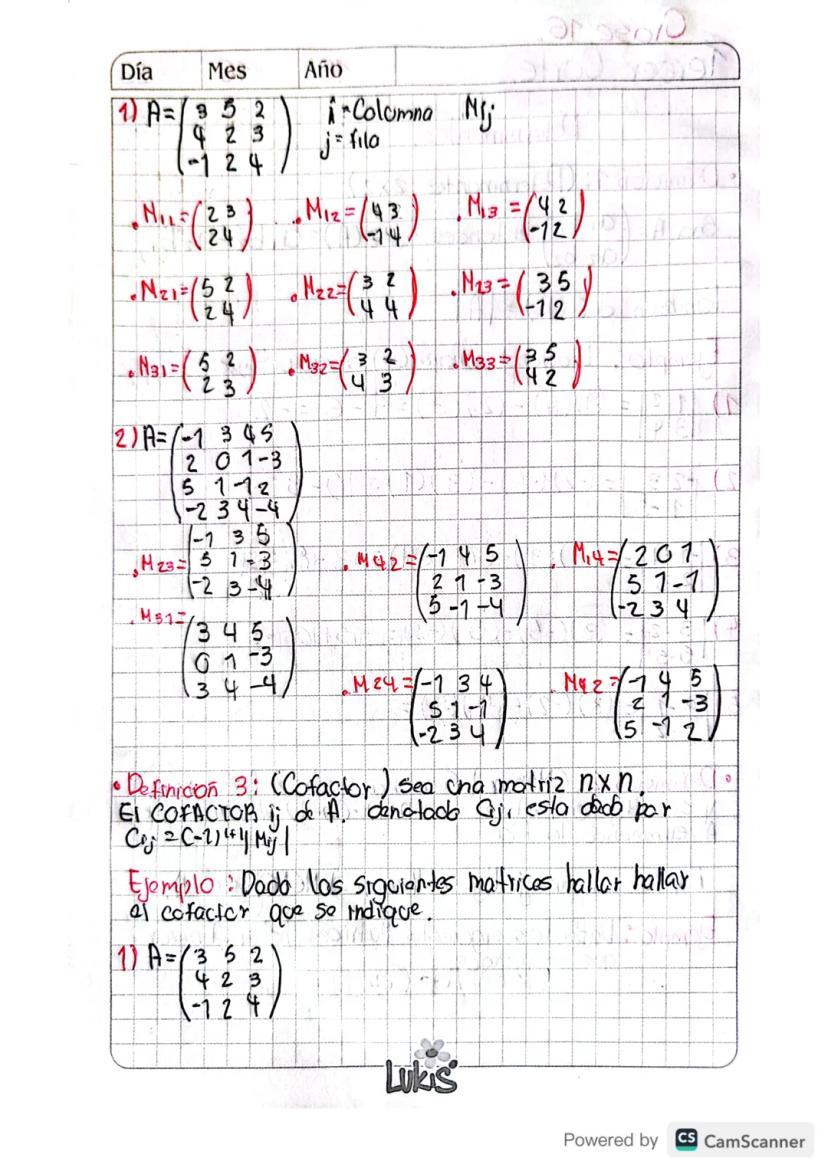 Día Mes Año
1) A=(3 5 2 i=Columna Mij
4 2 3 j=fila
-1 2 4)
.M11=(2 3 .M12=(4 3 .M13=(4 2
2 4) -1 4) -1 2)
.M21=(5 2 .M22=(3 2 .M23=(3 5
2 4) 4 4) -1 2)
.M31=(5 2 .M32=(3 2 .M33=(3 5
2 3) 4 3) 4 2)
2) A=(-1 3 4 5
2 0 1 -3
5 1 -1 2
-2 3 4 -4)
.M23=(-1 3 5
5 1 -3
-2 3 -4)
.M42=(-1 4 5
2 1 -3
5 -1 -4)
.M14=(2 0 1
5 1 -1
-2 3 4)
.M31=
(3 4 5
0 1 -3
3 4 -4)
.M24=(-1 3 4
5 1 -1
-2 3 4)
.M42=(-1 4 5
2 1 -3
5 -1 2)
• Definicon 3: (Cofactor) sea una matriz nxn.
El COFACTOR ij de A. denotado Cij, esta dado por
Cij=(-1)i+j|Mij|
Ejemplo: Dado las siguientes matrices hallar hallar
el cofactor que se indique.
1) A=(3 5 2
4 2 3
-1 2 4)
LUKIS
Powered by CS CamScanner